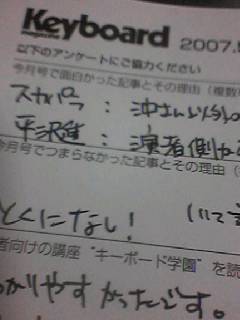 Keyboard
magazine
2007.
以下のアンケートにご協力ください
今月号で面白かった記事とその理由（複数
スカパラ：沖さん
平沢進：演者側か
今月号でつまらなかった記事とその理由（
とくになし！
者向けの講座“キーボード学園”を読
かりやすかったです。